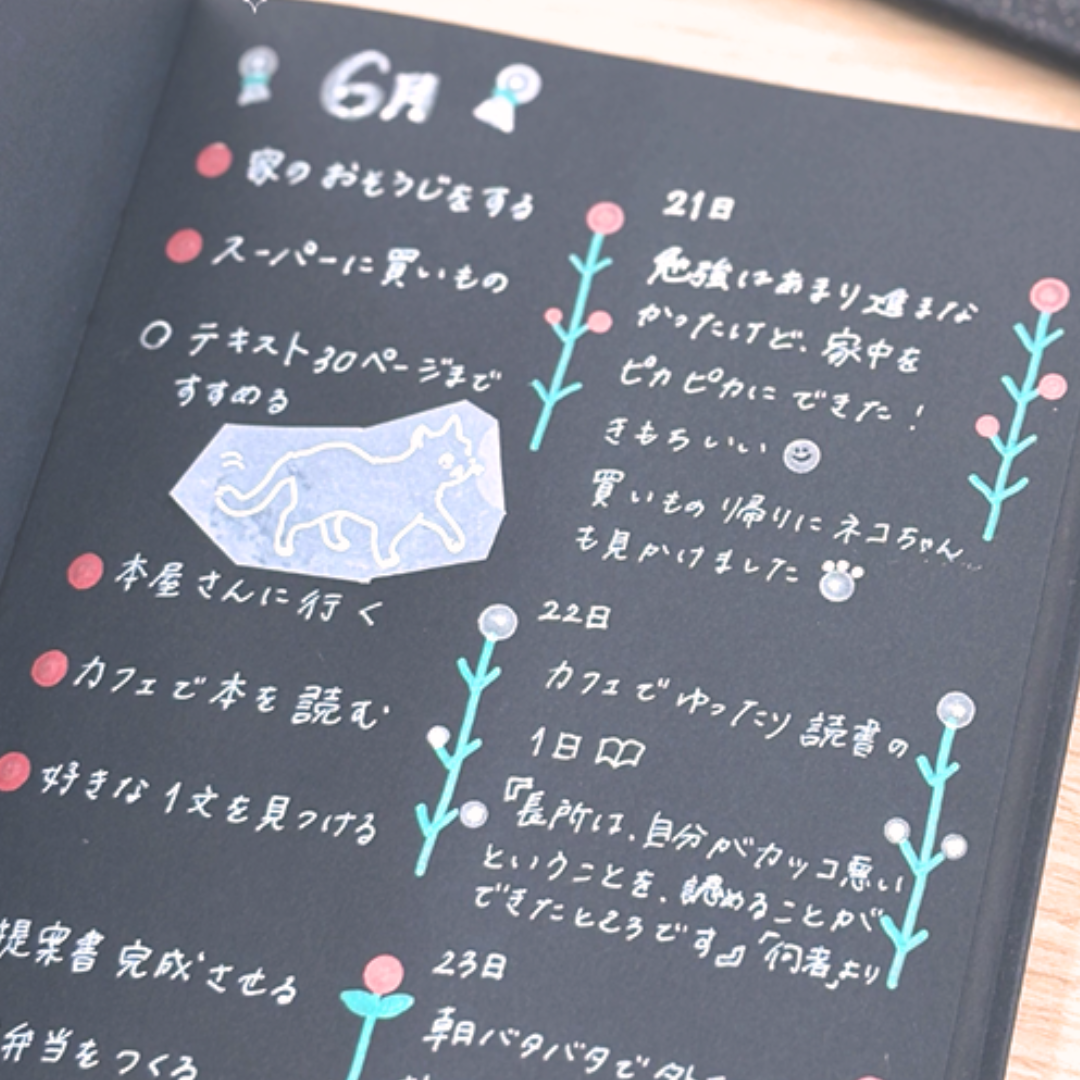 6月
家のおそうじをする
スーパーに買いもの
テキスト30ページまで
すすめる
本屋さんに行く
カフェで本を読む
好きな1文を見つける
提案書完成させる
弁当をつくる
21日
勉強はあまり進まな
かったけど、家中を
ピカピカにできた!
きもちいい
買いもの帰りにネコちゃん…
も見かけました
22日
カフェでゆったり読書の
1日
『長所は、自分がカッコ悪い
ということを、認めることが
できたところです』『何者』より
23日
朝バタバタで